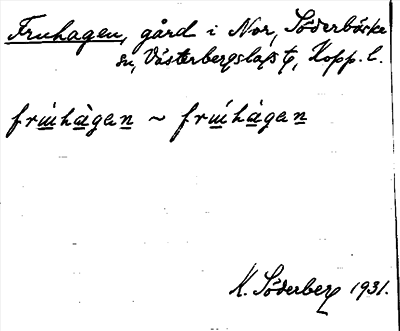 Fruhagen, gård i Nor, Söderbärke
sn, Västerbergslags t, Kopp. l.
frùhàgen ~ frúhàgen
K. Söderberg 1931.